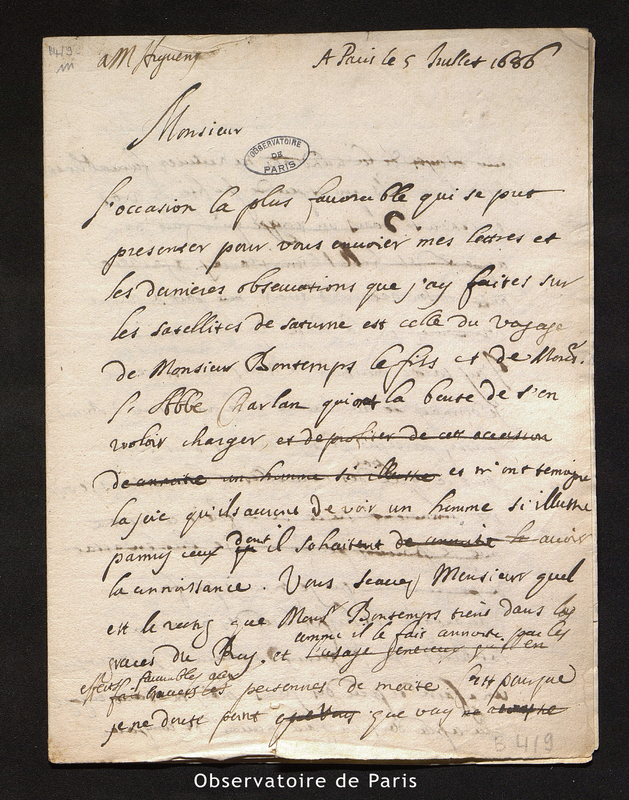 a M Huguens
A Paris le 5 Juillet 1686
Monsieur
OBSERVATOIRE
DE
PARIS
l'occasion la plus favorable qui se put
presenter pour vous envoier mes lettres et
les dernieres observations que j'ay faites sur
les satellites de saturne est celle du voyage
de Monsieur Bontemps le fils et de Monsr.
l'Abbé Charlan qui ont la bonté de s'en
voloir charger et de profiter de cett occasion
de un homme si illustre et m'ont temoigne
la joie qu'ils auront de voir un homme si illustre
parmy ceux dont il sohaitent de le avoir
la connoissance. Vous scavez Monsieur quel
est le rang que Monsr Bontemps tiens dans les
graces du Roy, et l'usage genereux qu'il en
comme il le fait par les
effects favorables aux
fait personnes de merite c'est pourquoy
je ne doute point que vous que vous ne
5 4/9
Observatoire de Paris